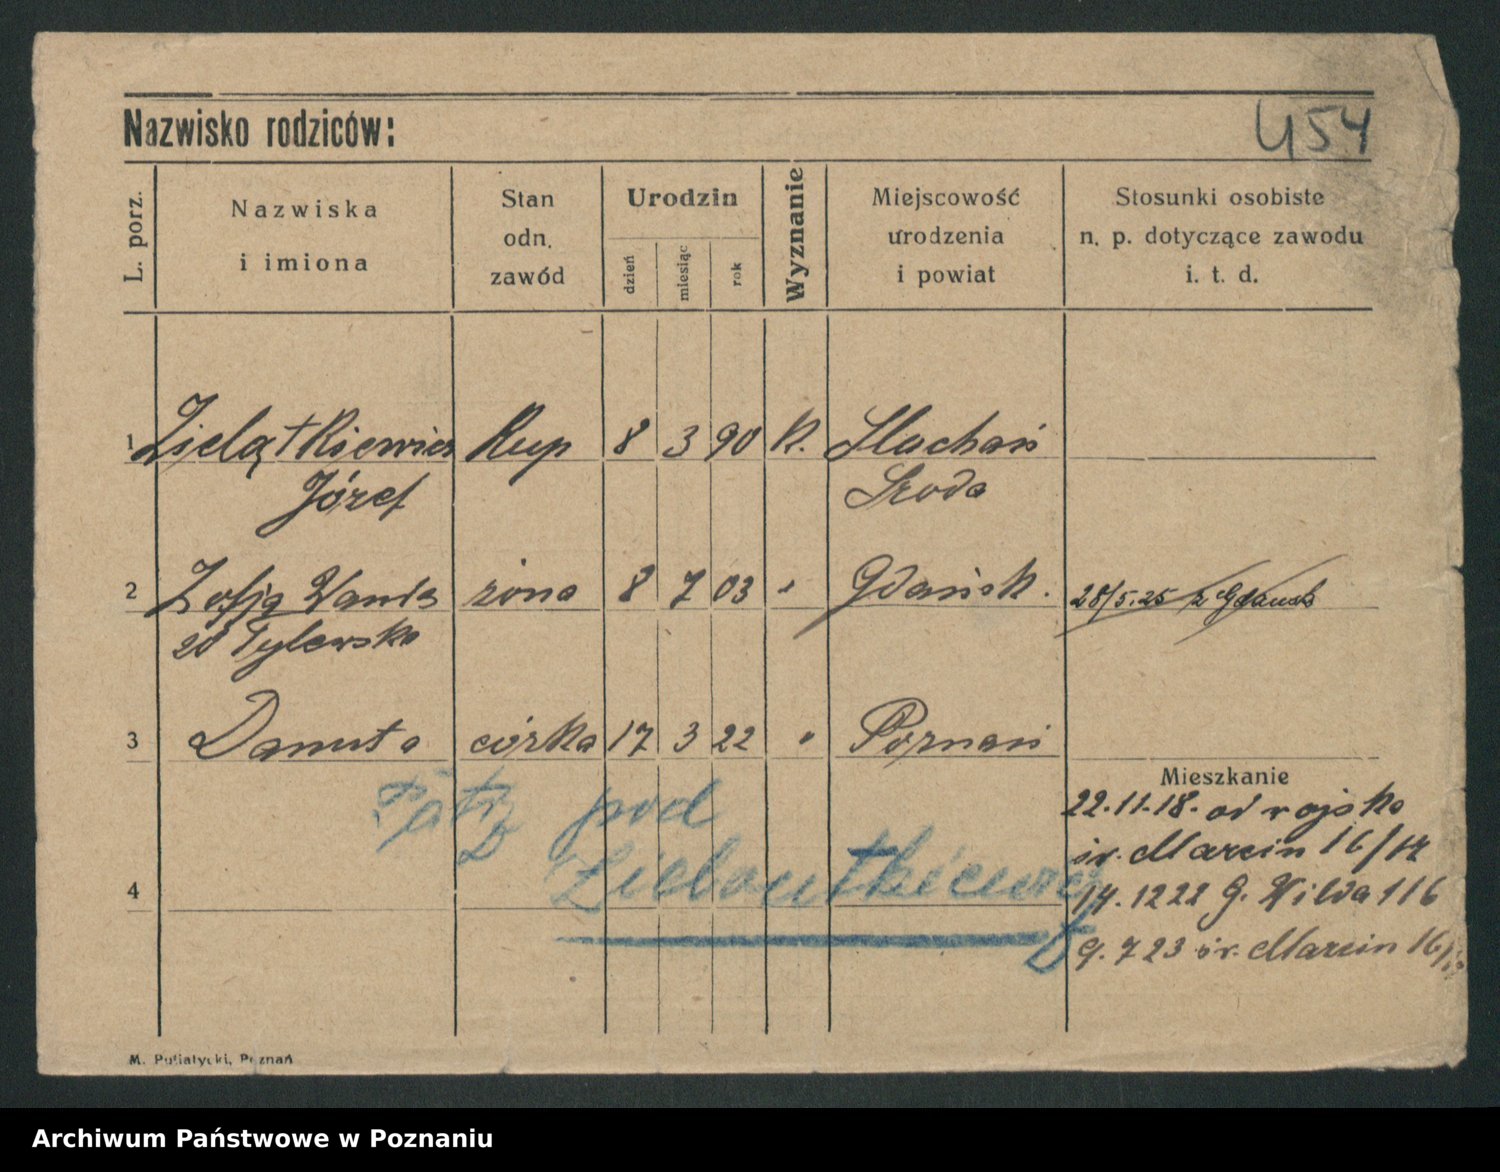 Nazwisko rodziców:
454
L. porz.
Nazwiska
i imiona
Stan
odn.
zawód
Urodzin
dzień
miesiąc
rok
Wyznanie
Miejscowość
urodzenia
i powiat
Stosunki osobiste
n. p. dotyczące zawodu
i. t. d.
1 Zielątkiewicz Kup 8 3 90 K.
Józef Środa
2 Zofja Wanda żona 8 7 03 " Gdańsk. 28/5.25 z Gdańsk
zd Tylewska
3 Danuta córka 17 3 22 " Poznań
Mieszkanie
22.11.18. od wojska
św. Marcin 16/17
14.1222 G. Wilda 116
9.723 św. Marcin 16/
Patrz pod
4
M. Putiatycki, Poznań
Archiwum Państwowe w Poznaniu